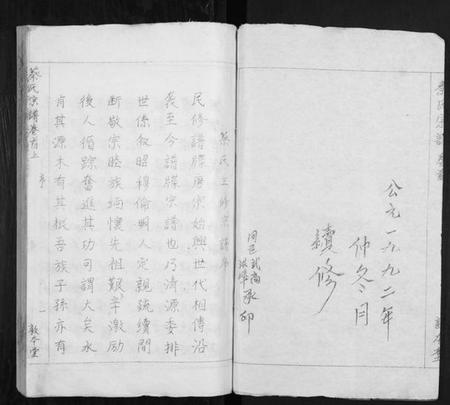 公元一九九二年
仲冬月
續修
承印
蔡氏三修宗譜序
民修譜牒唐宗始興世代相傳沿
義至今譜牒宗譜也乃清源委排
世係叙昭穆倫嗣人定親疏續間
断敬宗睦族緬懷先祖艱辛激励
後人循踪奮進其功可謂大矣水
有其源木有其根吾族子孫亦有
蔡氏宗譜卷首上
序
一
敦本堂